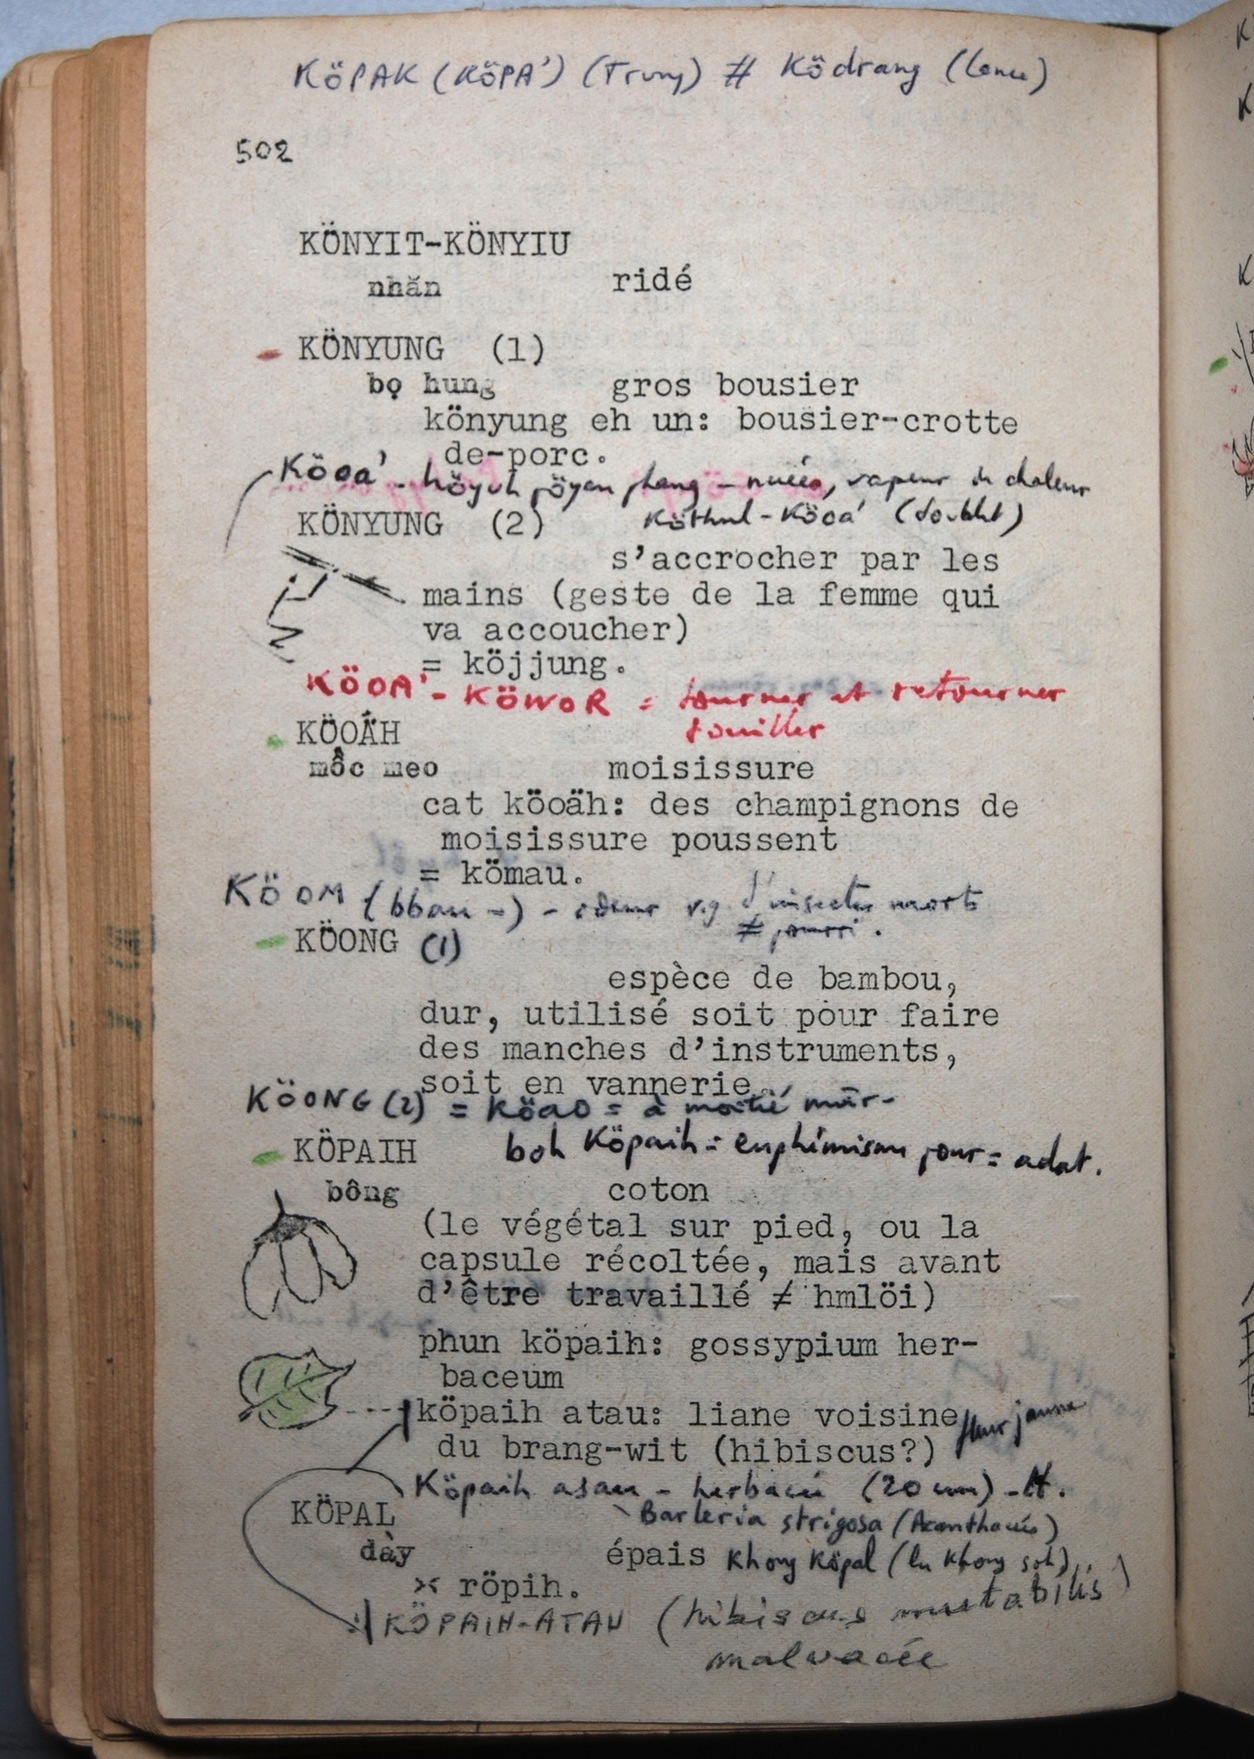 KÖPAK (KÖPA') (Trung) # Ködrang (lance)
502
KÖNYIT-KÖNYIU
nhăn ridé
KÖNYUNG (1)
bọ hung gros bousier
könyung eh un: bousier-crotte
de-porc.
Köoa' - höyuh röyan phang - nuées, vapeur de chaleur
KÖNYUNG (2) Köthul-Köoa' (doublet)
s'accrocher par les
mains (geste de la femme qui
va accoucher)
= köjjung.
KÖOA' - KÖWOR = tourner et retourner
fouiller
KÖOĂH
mốc meo moisissure
cat köoäh: des champignons de
moisissure poussent
= kömau.
KÖOM (bbau -) - odeur v.g. d'insectes morts
≠ pourri.
KÖONG (1)
espèce de bambou,
dur, utilisé soit pour faire
des manches d'instruments,
soit en vannerie.
KÖONG (2) = Köao = à moitié mûr-
KÖPAIH boh Köpaih = euphémisme pour = adat.
bông coton
(le végétal sur pied, ou la
capsule récoltée, mais avant
d'être travaillé ≠ hmlöi)
phun köpaih: gossypium her-
baceum
köpaih atau: liane voisine fleur jaune
du brang-wit (hibiscus?)
Köpaih asau - herbacée (20 cm) - H.
KÖPAL Barleria strigosa (Acanthacées)
dày épais Khong Köpal (lu Khong soh)
>< röpih.
KÖPAIH-ATAU (hibiscus mutabilis)
malvacée